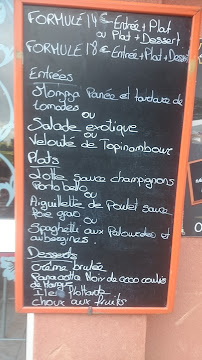 FORMULE 14€ Entrée + Plat
ou Plat + Dessert
FORMULE 18€ Entrée + Plat + Dessert
Entrées
Panée et tartare de
tomates
ou
Salade exotique
ou
Velouté de Topinambour
Plats
Lotte sauce champignons
Portobello
ou
Aiguillette de Poulet sauce
Foie gras
ou
Spaghetti aux Palourdes et
aubergines.
Desserts
Crème brulée
Panacotta Noix de coco coulis
de Mangue
Ile Flottante
choux aux fruits